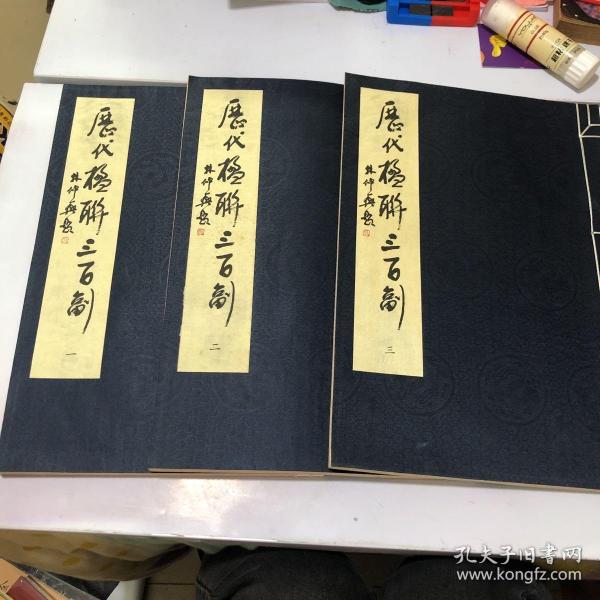 歷代楹聯三百副
林仲興題
一
歷代楹聯三百副
林仲興題
二
歷代楹聯三百副
林仲興題
三
孔夫子旧書网
www.kongfz.com